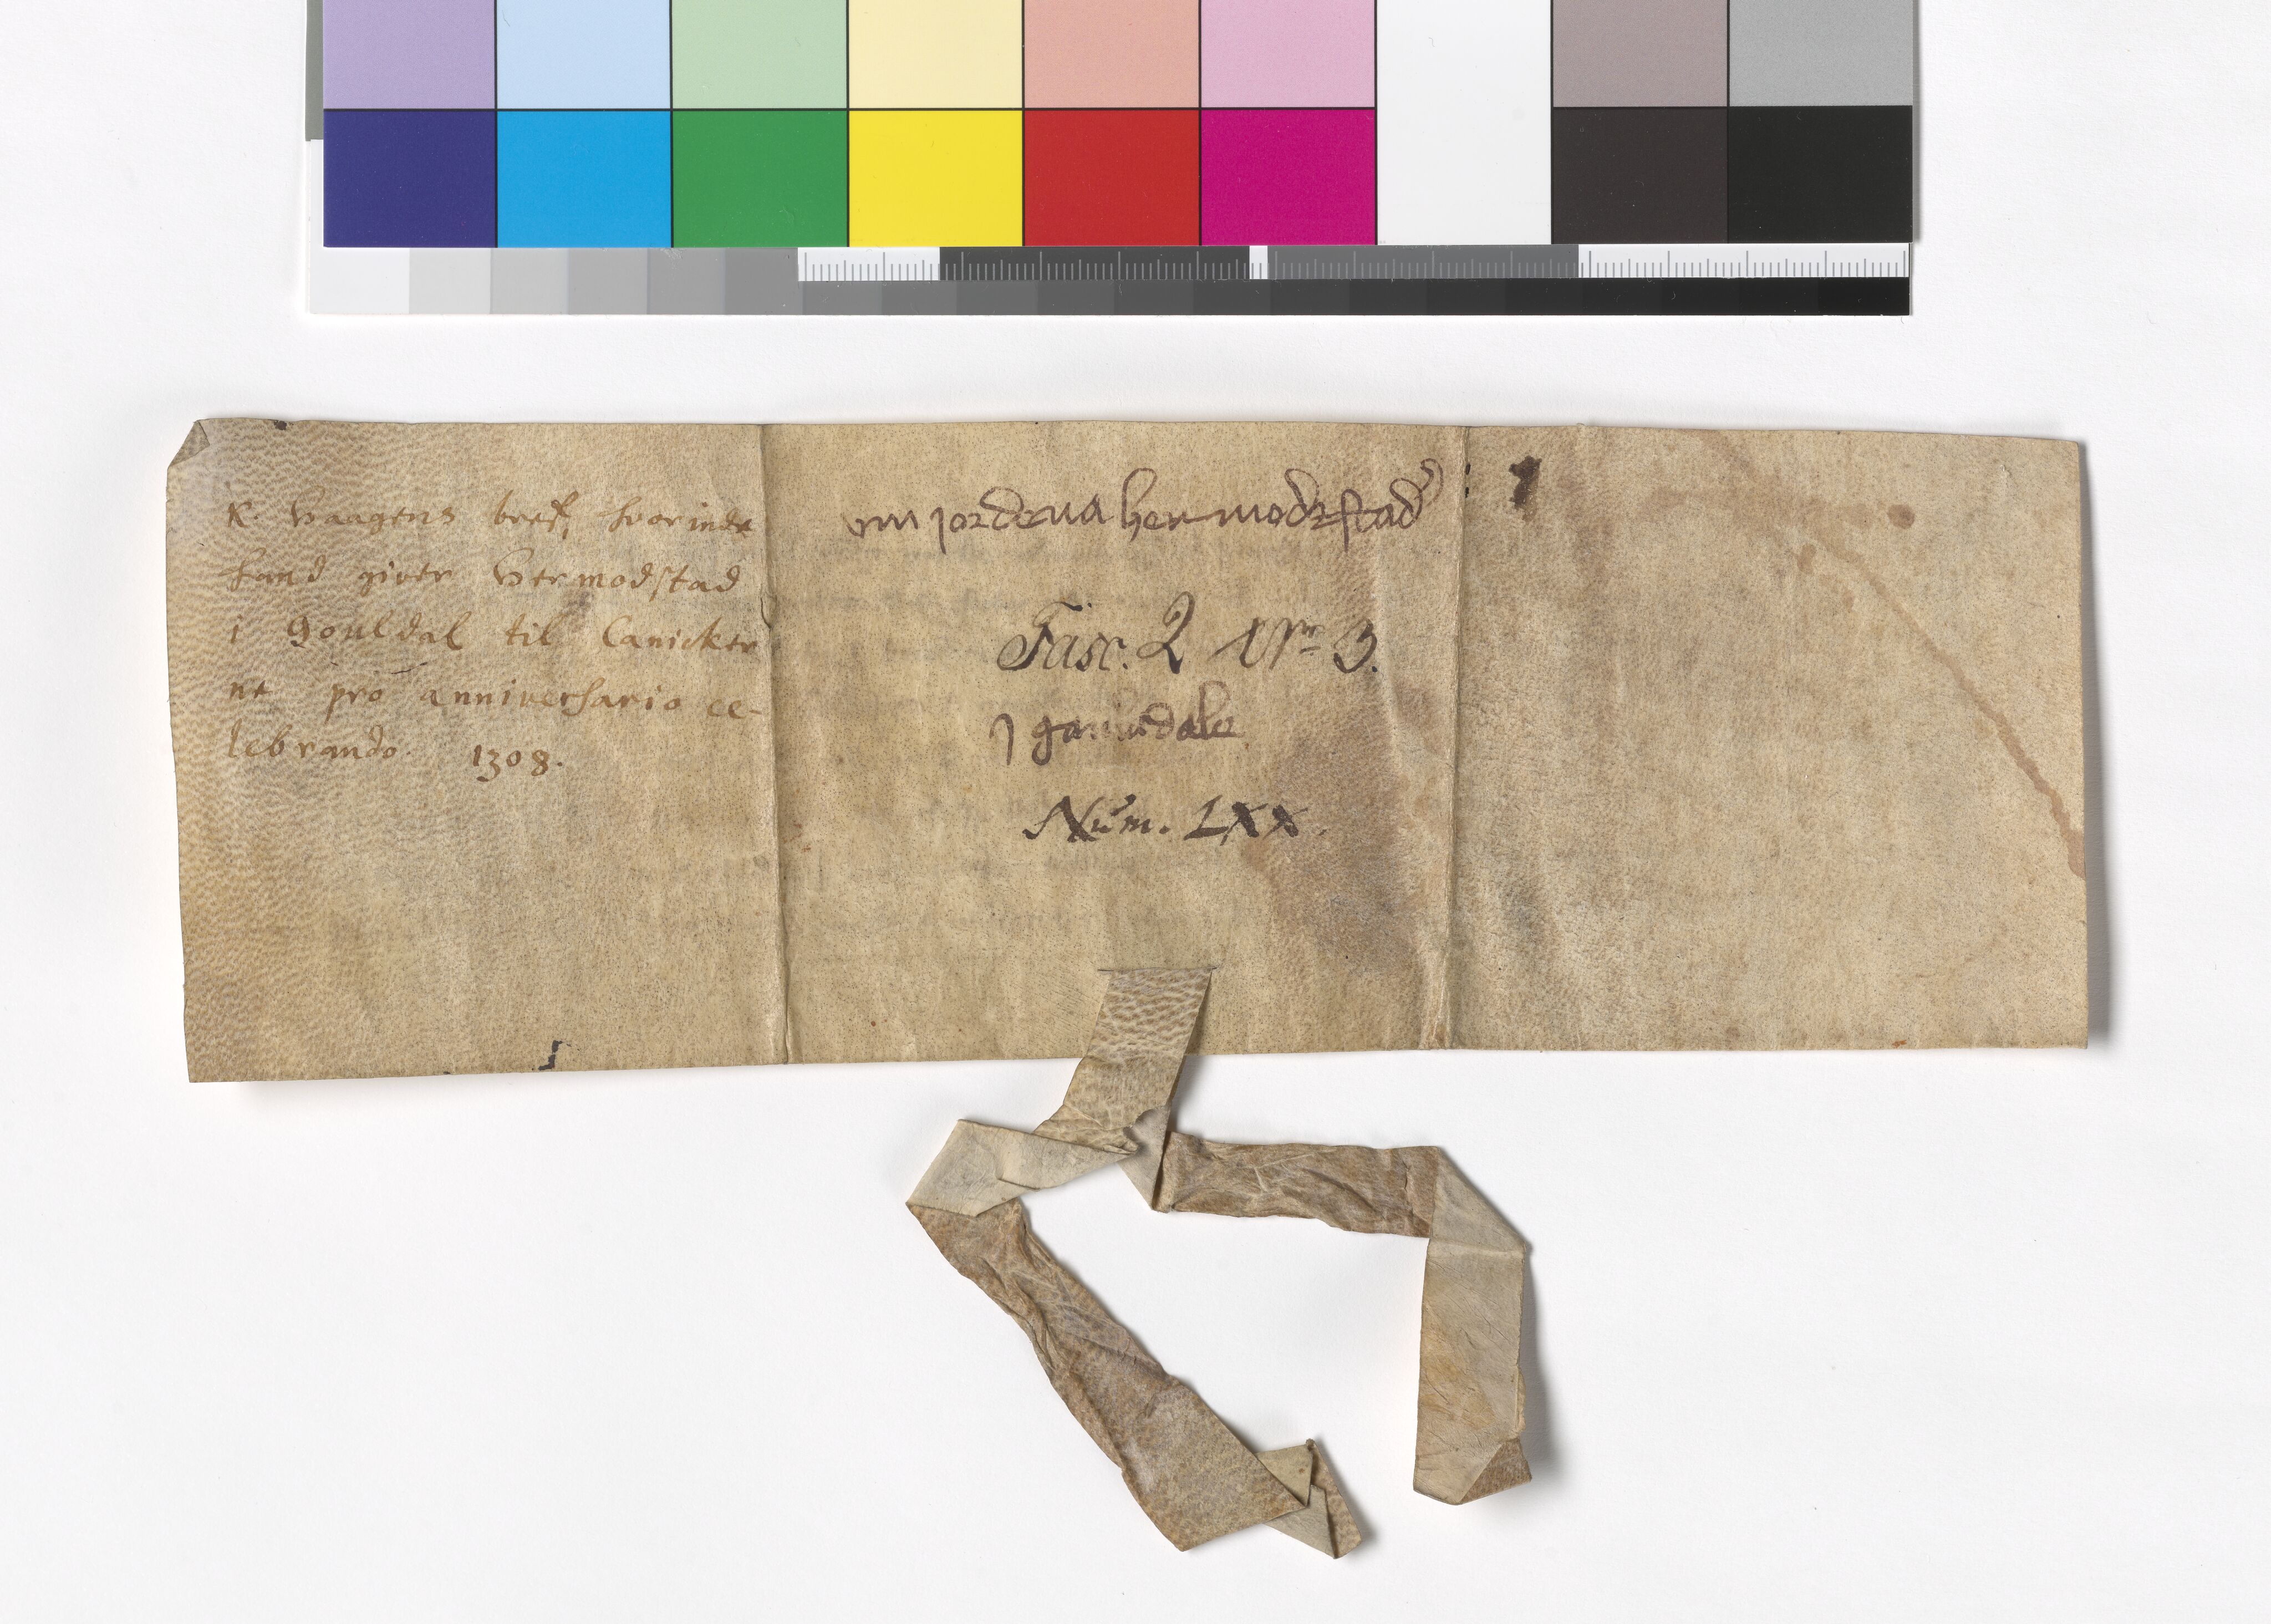 K. Haagens bref, hvorinde
hand giver Hermodstad
i Gouldal til Canicker
ne pro anniversario ce-
lebrando. 1308.
vm jordena hermodzstad
Fasc. 2 Nr 3.
j gauldale
Num. LXX.